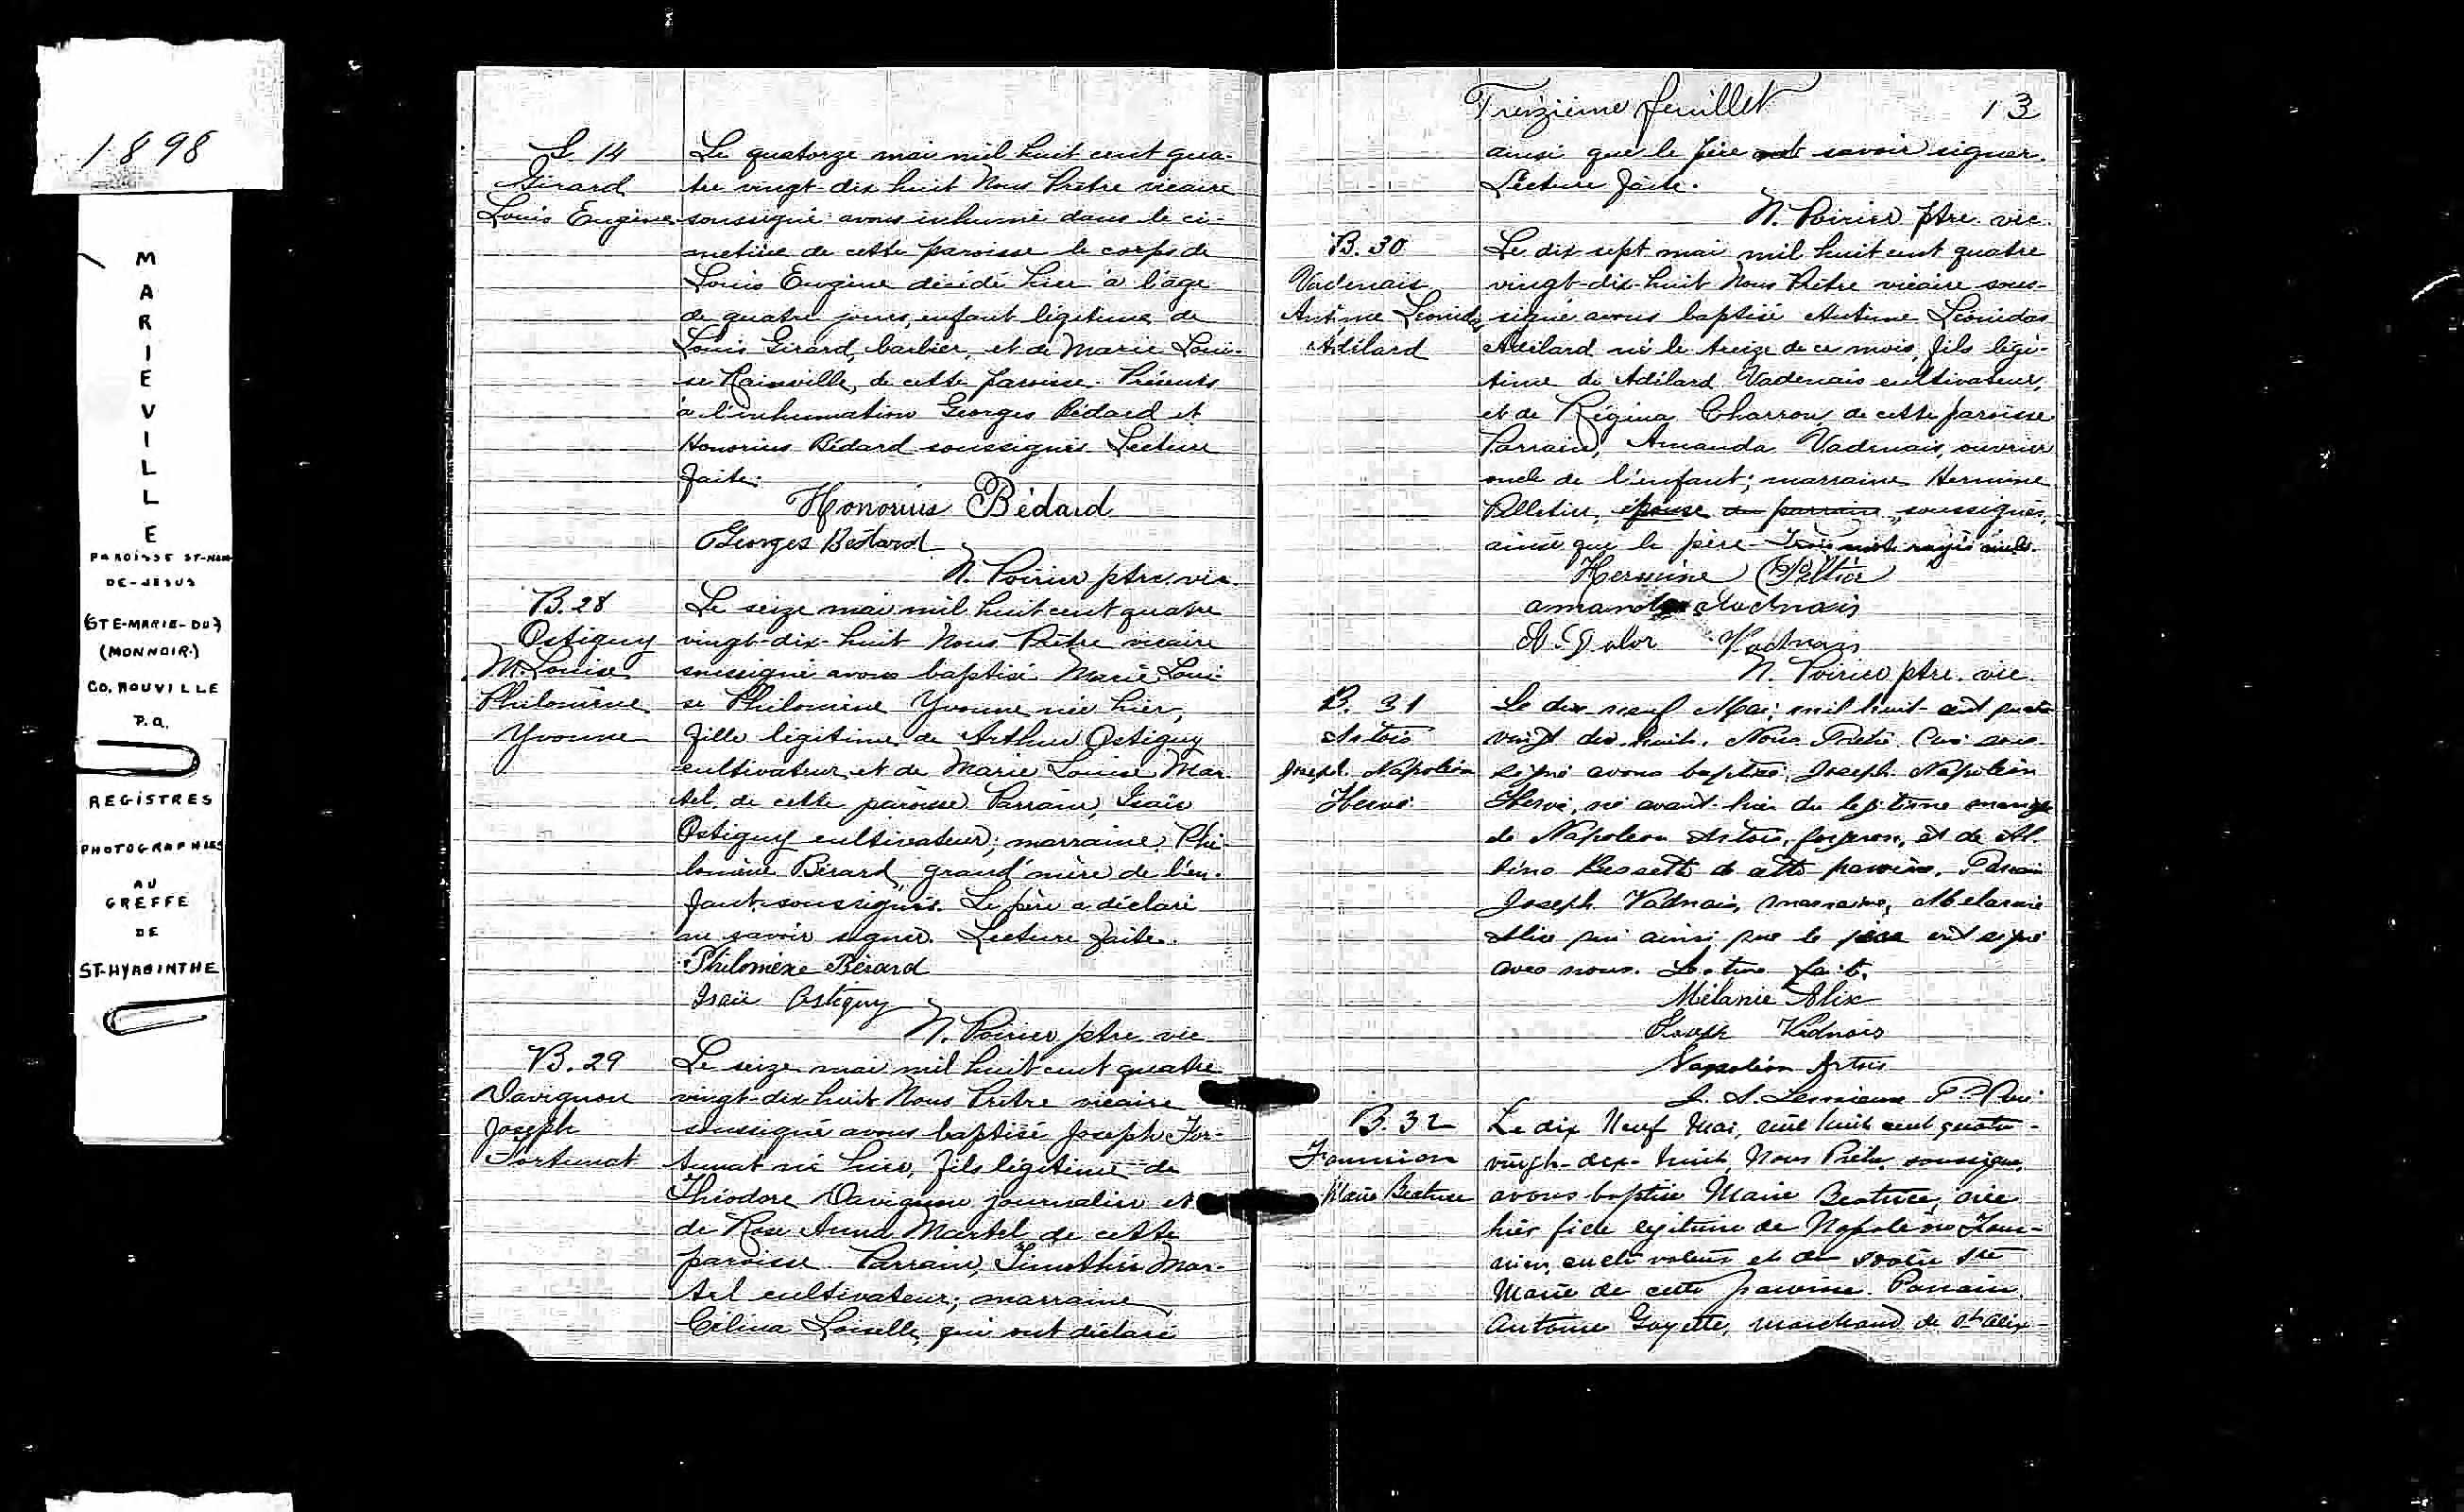 1898
M
A
R
I
E
V
I
L
L
E
PAROISSE ST-NOM
DE-JESUS
(STE-MARIE-DU)
(MONNOIR)
CO. ROUVILLE
P.Q.
REGISTRES
PHOTOGRAPHIES
AU
GREFFE
DE
ST-HYACINTHE
S. 14
Girard
Louis Eugène
Le quatorze mai mil huit cent qua-
tre vingt-dix huit Nous Prêtre vicaire
soussigné avons inhumé dans le ci-
metière de cette paroisse le corps de
Louis Eugène décédé hier à l'âge
de quatre jours, enfant légitime de
Louis Girard, barbier, et de Marie Loui-
se Rainville, de cette paroisse. Présents
à l'inhumation Georges Bédard et
Honorius Bédard soussignés. Lecture
faite.
Honorius Bédard
Georges Bédard
N. Poirier ptre vic.
B. 28
Ostiguy
M. Louise
Philomène
Yvonne
Le seize mai mil huit cent quatre
vingt-dix-huit Nous Prêtre vicaire
soussigné avons baptisé Marie Loui-
se Philomène Yvonne née hier,
fille légitime de Arthur Ostiguy
cultivateur, et de Marie Louise Mar-
tel, de cette paroisse. Parrain, Isaïe
Ostiguy cultivateur; marraine, Phi-
lomène Bérard, grand'mère de l'en-
fant soussignés. Le père a déclaré
ne savoir signer. Lecture faite.
Philomène Bérard
Isaïe Ostiguy
N. Poirier ptre vic
B. 29
Davignon
Joseph
Fortunat
Le seize mai mil huit cent quatre
vingt-dix huit Nous Prêtre vicaire
soussigné avons baptisé Joseph For-
tunat né hier, fils légitime de
Théodore Davignon journalier et
de Rose Anna Martel de cette
paroisse. Parrain, Timothée Mar-
tel cultivateur; marraine
Célina Loiselle, qui ont déclaré
Treizième feuillet 13
ainsi que le père savoir signer.
Lecture faite.
N. Poirier ptre. vic.
B. 30
Vadenais
Antime Léonidas
Adélard
Le dix sept mai mil huit cent quatre
vingt-dix-huit Nous Prêtre vicaire sous-
signé avons baptisé Antime Léonidas
Adélard né le treize de ce mois, fils légi-
time de Adélard Vadenais cultivateur,
et de Régina Charron, de cette paroisse
Parrain, Amanda Vadenais, ouvrier
oncle de l'enfant; marraine Hermine
Pelletier, épouse du parrain, soussignés,
ainsi que le père. Trois mots rayés nuls.
Hermine Peltier
amanda Vadnais
Vadnais
N. Poirier ptre. vic.
B. 31
Artois
Joseph Napoléon
Hervé
Le dix-neuf Mai mil huit-cent quatre
vingt dix-huit. Nous Prêtre Curé sous-
signé avons baptisé, Joseph Napoléon
Hervé, né avant-hier du légitime mariage
de Napoléon Artois, forgeron, et de Al-
bina Bessette de cette paroisse. Parrain
Joseph Vadnais, marraine, Mélanie
Alix qui ainsi que le père ont signé
avec nous. Lecture faite.
Mélanie Alix
Joseph Vadnais
Napoléon Artois
J. A. Lemieux Ptre Curé
B. 32
Fournier
Marie Beatrice
Le dix Neuf Mai, mil huit cent quatre-
vingt-dix-huit, Nous Prêtre soussigné,
avons baptisé Marie Beatrice, née
hier fille légitime de Napoléon Four-
nier, cultivateur et de Ste
Marie de cette paroisse. Parrain,
Antoine Goyette, marchand de St Alix-